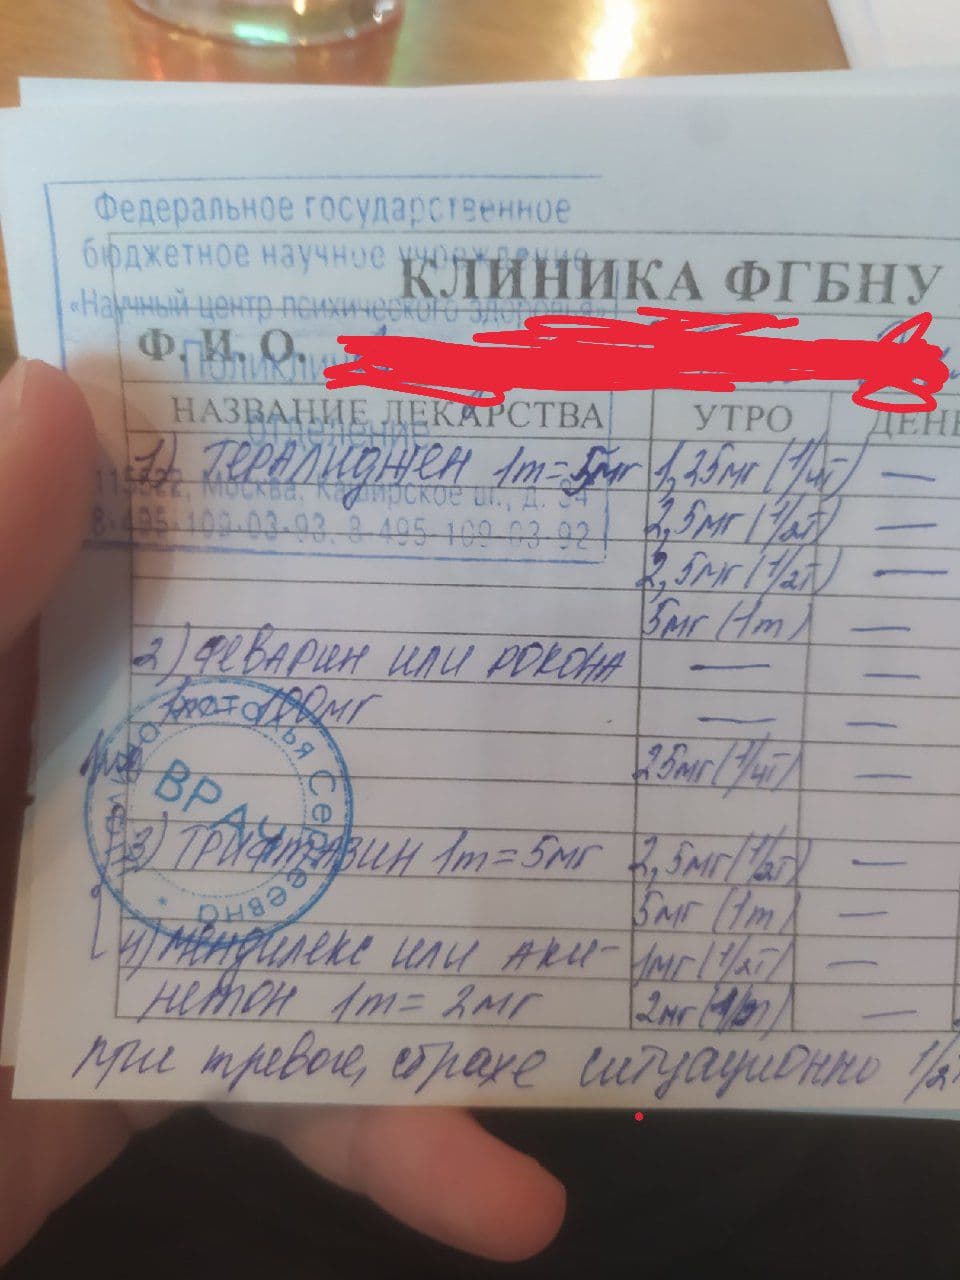 Федеральное государственное
бюджетное научное учреждение
КЛИНИКА ФГБНУ
«Научный центр психического здоровья»
Ф. И. О.
НАЗВАНИЕ ЛЕКАРСТВА УТРО ДЕНЬ
отделение
1) Тералиджен 1т=5мг 1,25мг (1/4т) —
115522, Москва, Каширское ш., д. 34
8-495-109-03-93, 8-495-109-03-92
2,5мг (1/2т) —
2,5мг (1/2т) —
5мг (1т) —
2) Феварин или Рокона — —
100мг — —
25мг (1/4т) —
ВРАЧ
Наталья Сергеевна
3) Трифтазин 1т=5мг 2,5мг (1/2т) —
5мг (1т) —
4) Мендилекс или Аки- 1мг (1/2т) —
нетон 1т=2мг 2мг —
при тревоге, страхе ситуационно 1/2т